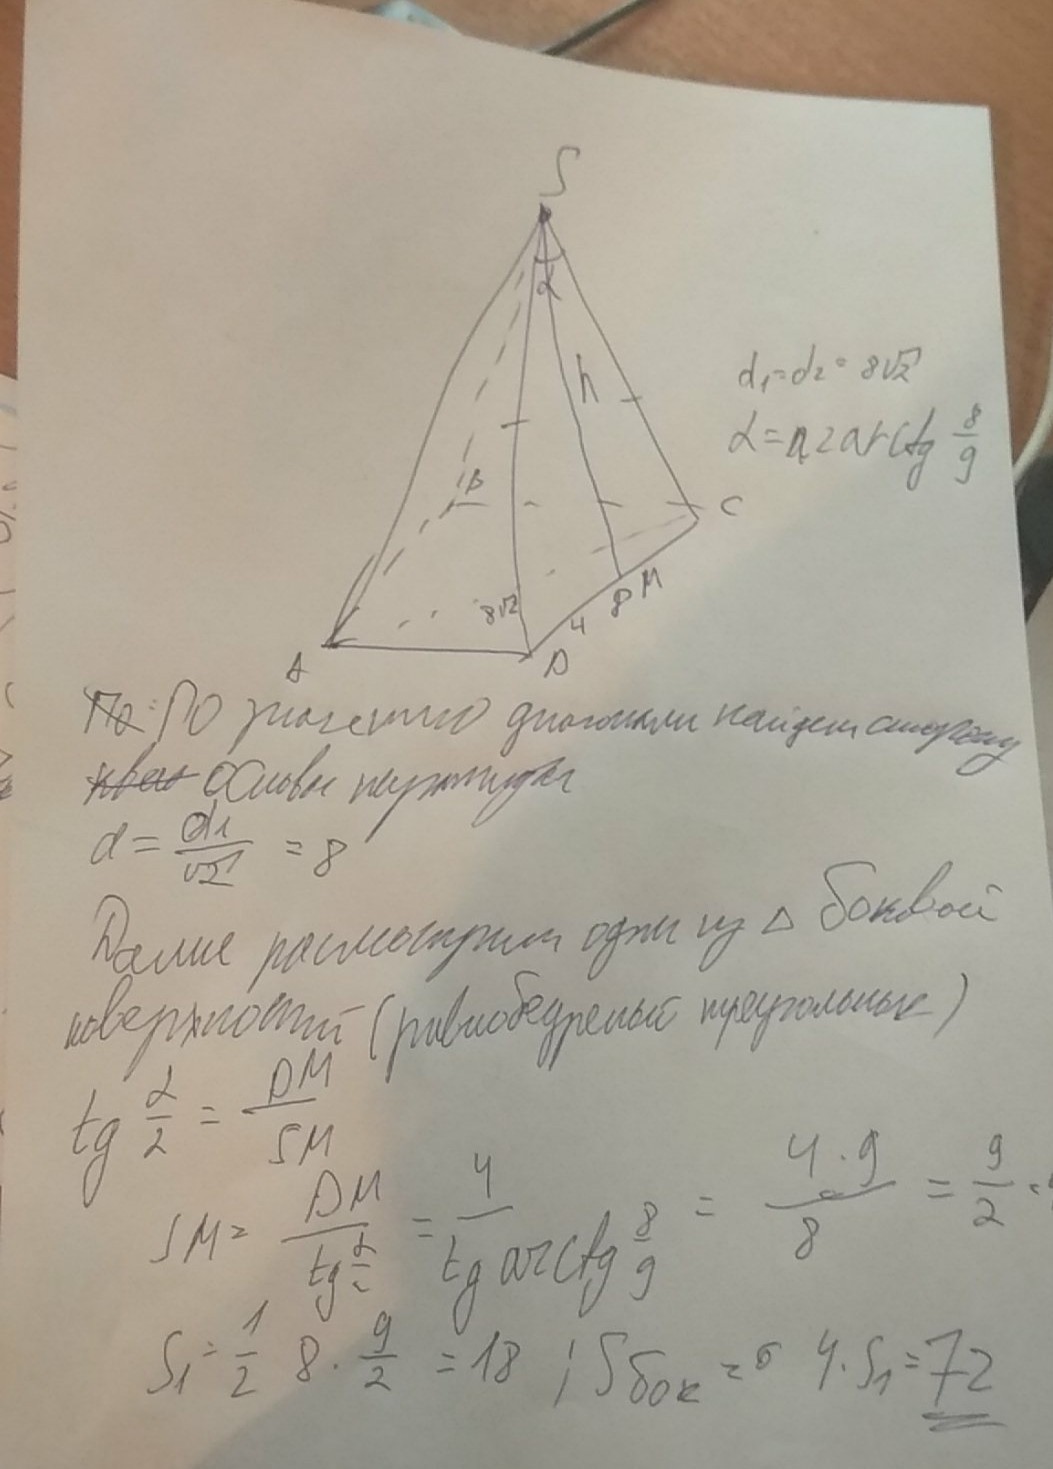 S
α
h
d₁=d₂=8√2
α=2arctg 8/9
B
C
8√2
M
8
4
A
D
По значению диагонали найдем сторону
основы пирамиды
a = d₁/√2 = 8
Далие расмотрим один из Δ боковой
поверхностей (равнобедреный треугольник)
tg α/2 = DM/SM
SM = DM/tg α/2 = 4/tg arctg 8/9 = 4·9/8 = 9/2
S₁ = 1/2 8 · 9/2 = 18 ; Sбок = 4·S₁ = 72